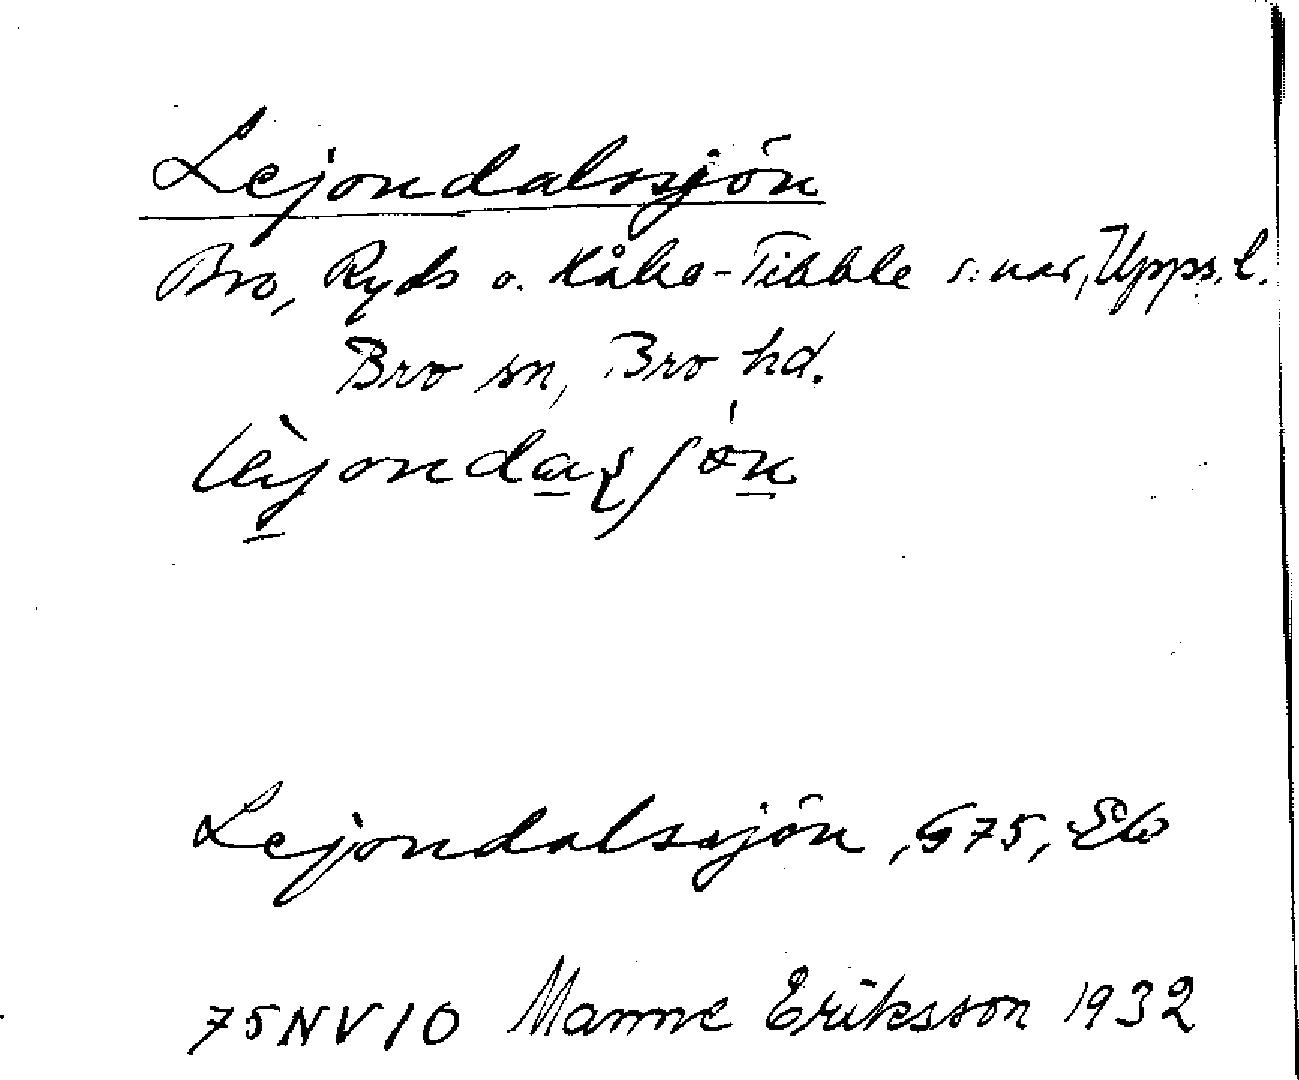 Lejondalssjön
Bro, Ryds o. Håbo-Tibble s:nar, Upps. l.
Bro sn, Bro hd.
Lejondalssjön, G75, Eb
75NV10 Manne Eriksson 1932